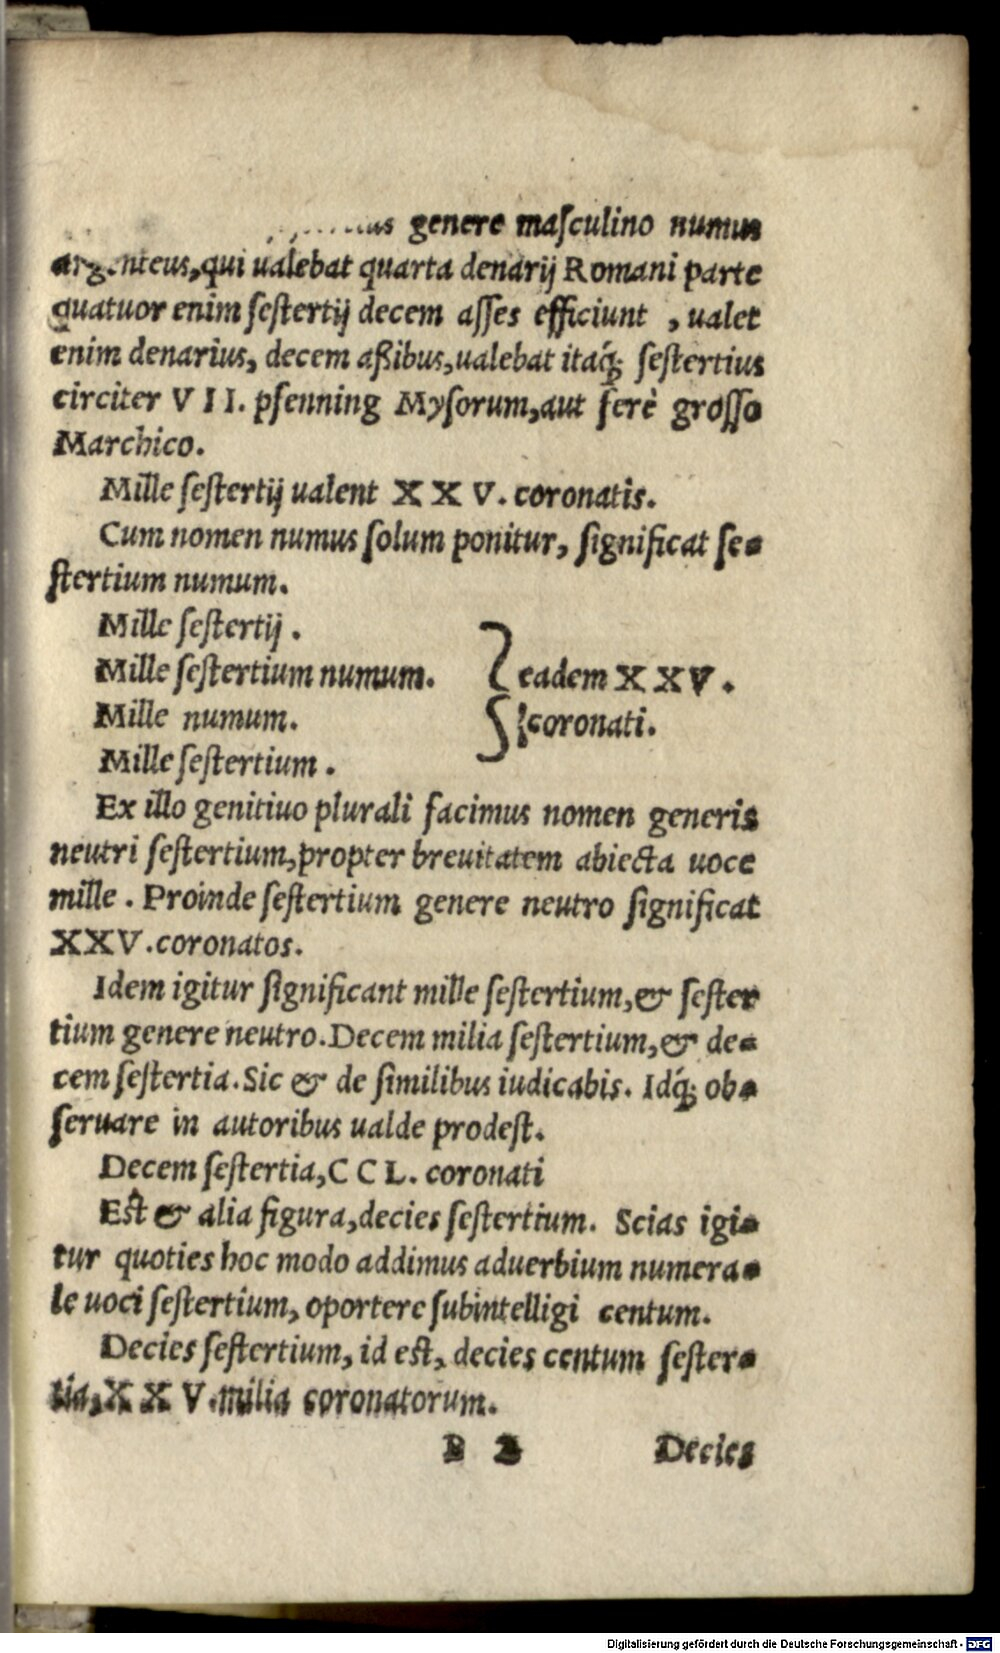 genere maſculino numus
argenteus, qui ualebat quarta denarij Romani parte
quatuor enim ſeſtertij decem aſſes efficiunt , ualet
enim denarius, decem aßibus, ualebat itaq́; ſeſtertius
circiter V I I. pfenning Myſorum, aut ferè groſſo
Marchico.
Mille ſeſtertij ualent X X V. coronatis.
Cum nomen numus ſolum ponitur, ſignificat ſe-
ſtertium numum.
Mille ſeſtertij .
Mille ſeſtertium numum.
Mille numum.
Mille ſeſtertium .
eadem X X V .
coronati.
Ex illo genitiuo plurali facimus nomen generis
neutri ſeſtertium, propter breuitatem abiecta uoce
mille . Proinde ſeſtertium genere neutro ſignificat
XXV. coronatos.
Idem igitur ſignificant mille ſeſtertium, & ſeſter
tium genere neutro. Decem milia ſeſtertium, & de-
cem ſeſtertia. Sic & de ſimilibus iudicabis. Idq́; ob-
ſeruare in autoribus ualde prodeſt.
Decem ſeſtertia, C C L. coronati
Eſt & alia figura, decies ſeſtertium. Scias igi-
tur quoties hoc modo addimus aduerbium numera-
le uoci ſeſtertium, oportere ſubintelligi centum.
Decies ſeſtertium, id eſt, decies centum ſeſter-
tia, X X V. milia coronatorum.
B 2 Decies
Digitalisierung gefördert durch die Deutsche Forschungsgemeinschaft - DFG